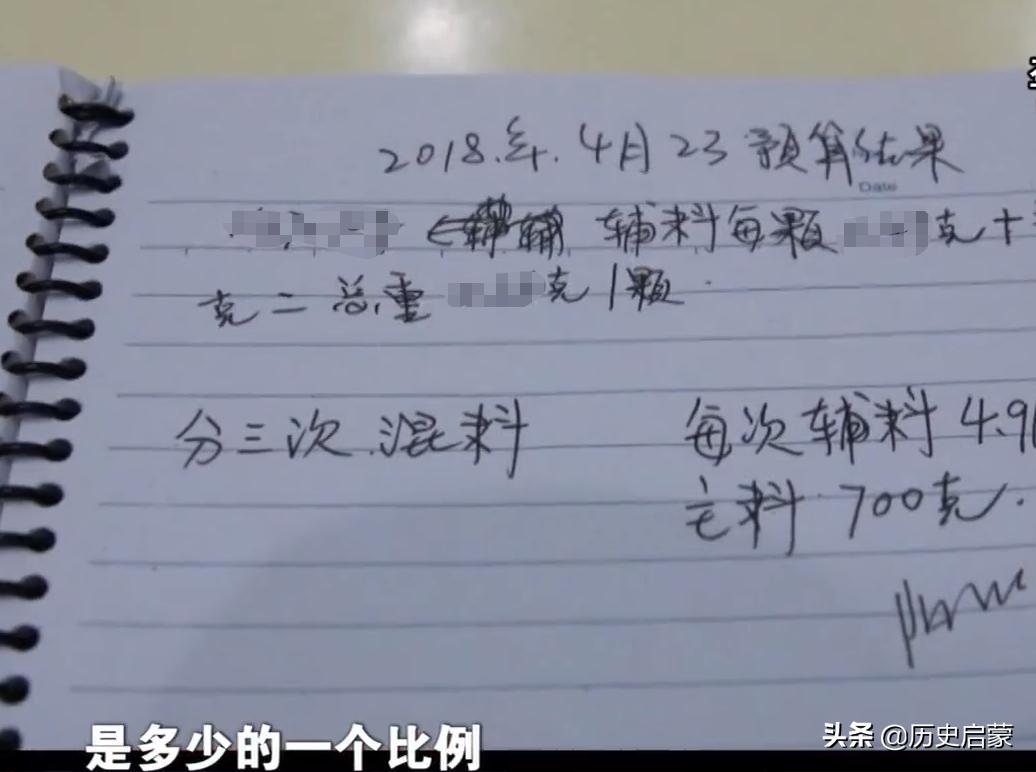 2018.年.4月23预算结果
Date
辅料每颗 克+
克=总重 克1颗.
分三次.混料 每次辅料4.9
主料 700克.
是多少的一个比例
头条 @历史启蒙